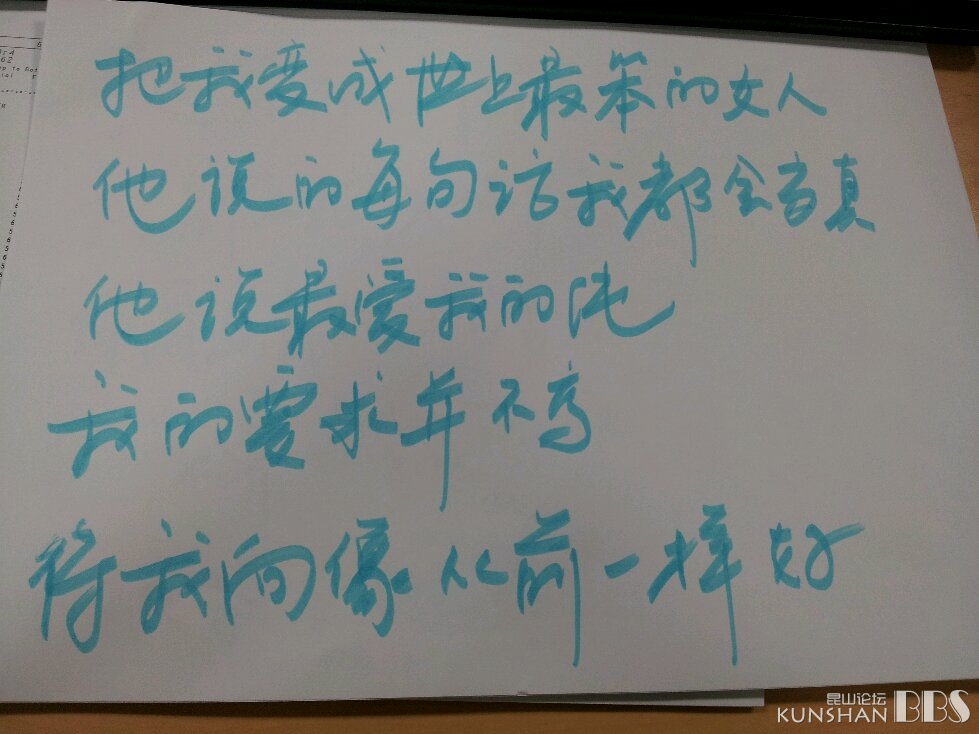 把我变成世上最笨的女人
他说的每句话我都会当真
他说最爱我的纯
我的要求并不高
待我向像从前一样好
昆山论坛
KUNSHAN BBS